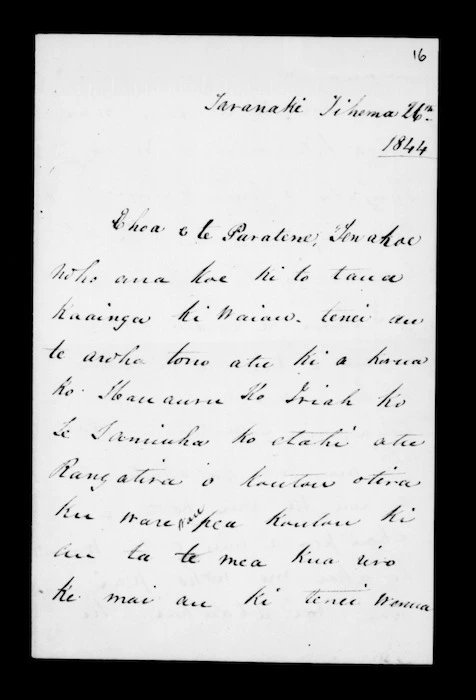 16
Taranaki Tihema 26th
1844
Ehoa e te Paratene, Tenakoe
Noho ana koe ki to taua
Kaainga ki Waiau. tenei au
te aroha tonu atu ki a korua
ko Hauauru Ko Iriah ko
Te Samiuha ko etahi atu
Rangatira o koutou otira
ku ware pau pea koutou ki
au ta te mea kua riro
ke mai au ki tenei Wenua